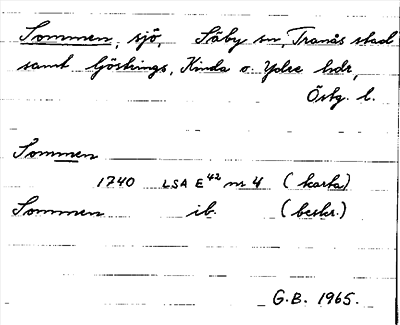 Sommen, sjö, Säby sn, Tranås stad
samt Göstrings, Kinda o. Ydre hdr,
Östg. l.
Sommen
1740 LSA E42 nr 4 (karta)
Sommen ib. (beskr.)
G.B. 1965.